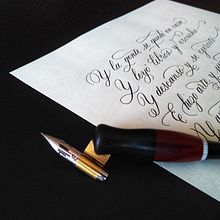 Y la gente se quedó en casa
Y leyó libros y escuchó
Y descansó y se ejercitó
E hizo arte